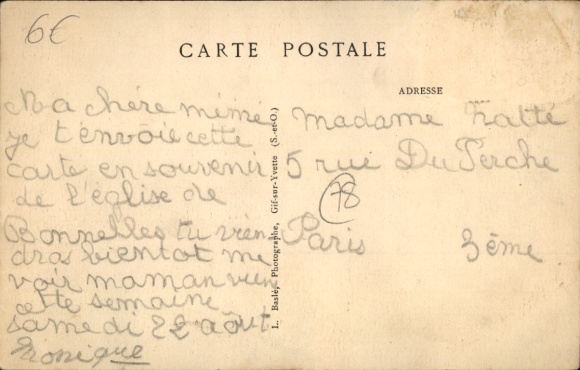 6€
CARTE POSTALE
ADRESSE
Ma chére mémé
je t'envoie cette
carte en souvenir
de l'église de
Bonnelles tu vien
dras vientot me
voir maman vien
cette semaine
samedi 22 août
Monique
L. Baslé, Photographe, Gif-sur-Yvette (S.-et-O.)
Madame
5 rue Du Perche
78
Paris 3ème